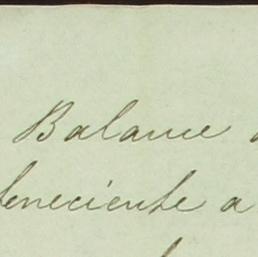 Balance
teneciente a